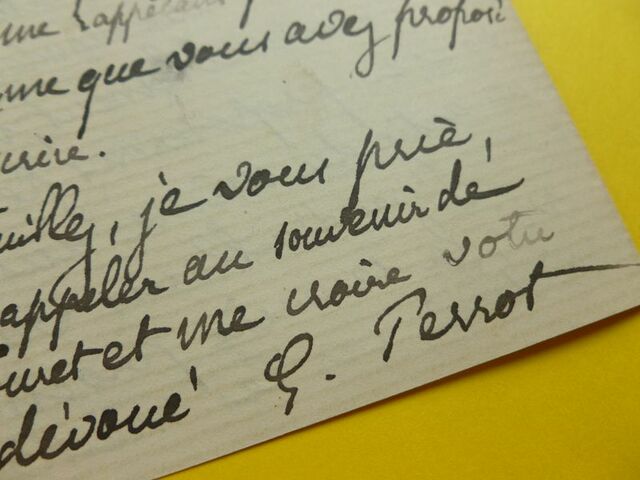 me rappelant
me que vous avez proposé
crire.
euillez, je vous prie,
appeler au souvenir de
et me croire votre
dévoué G. Perrot